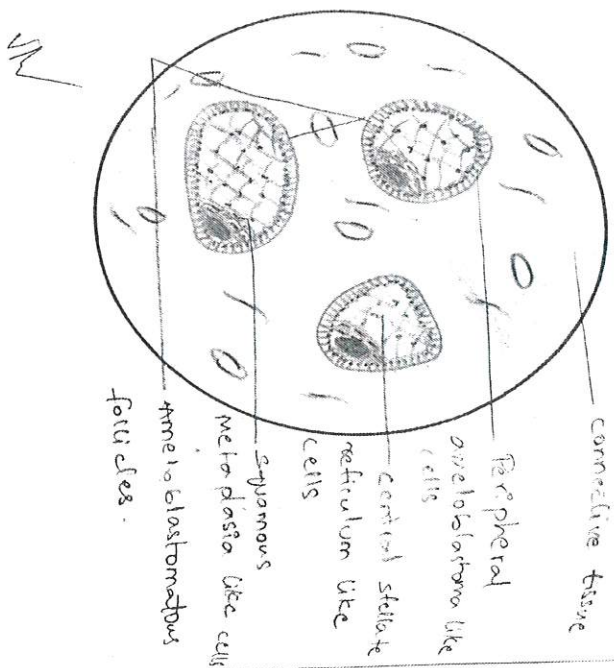 connective tissue
Peripheral
ameloblastoma like
cells
central stellate
reticulum like
cells
squamous
metaplasia like cells
Ameloblastomatous
follicles.